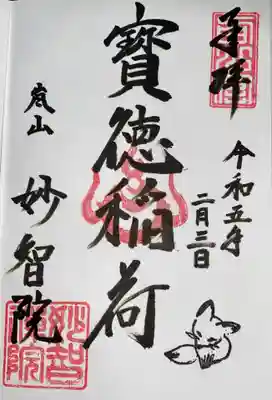 奉拝
令和五年
二月三日
寶徳稲荷
嵐山
妙智院
妙智院